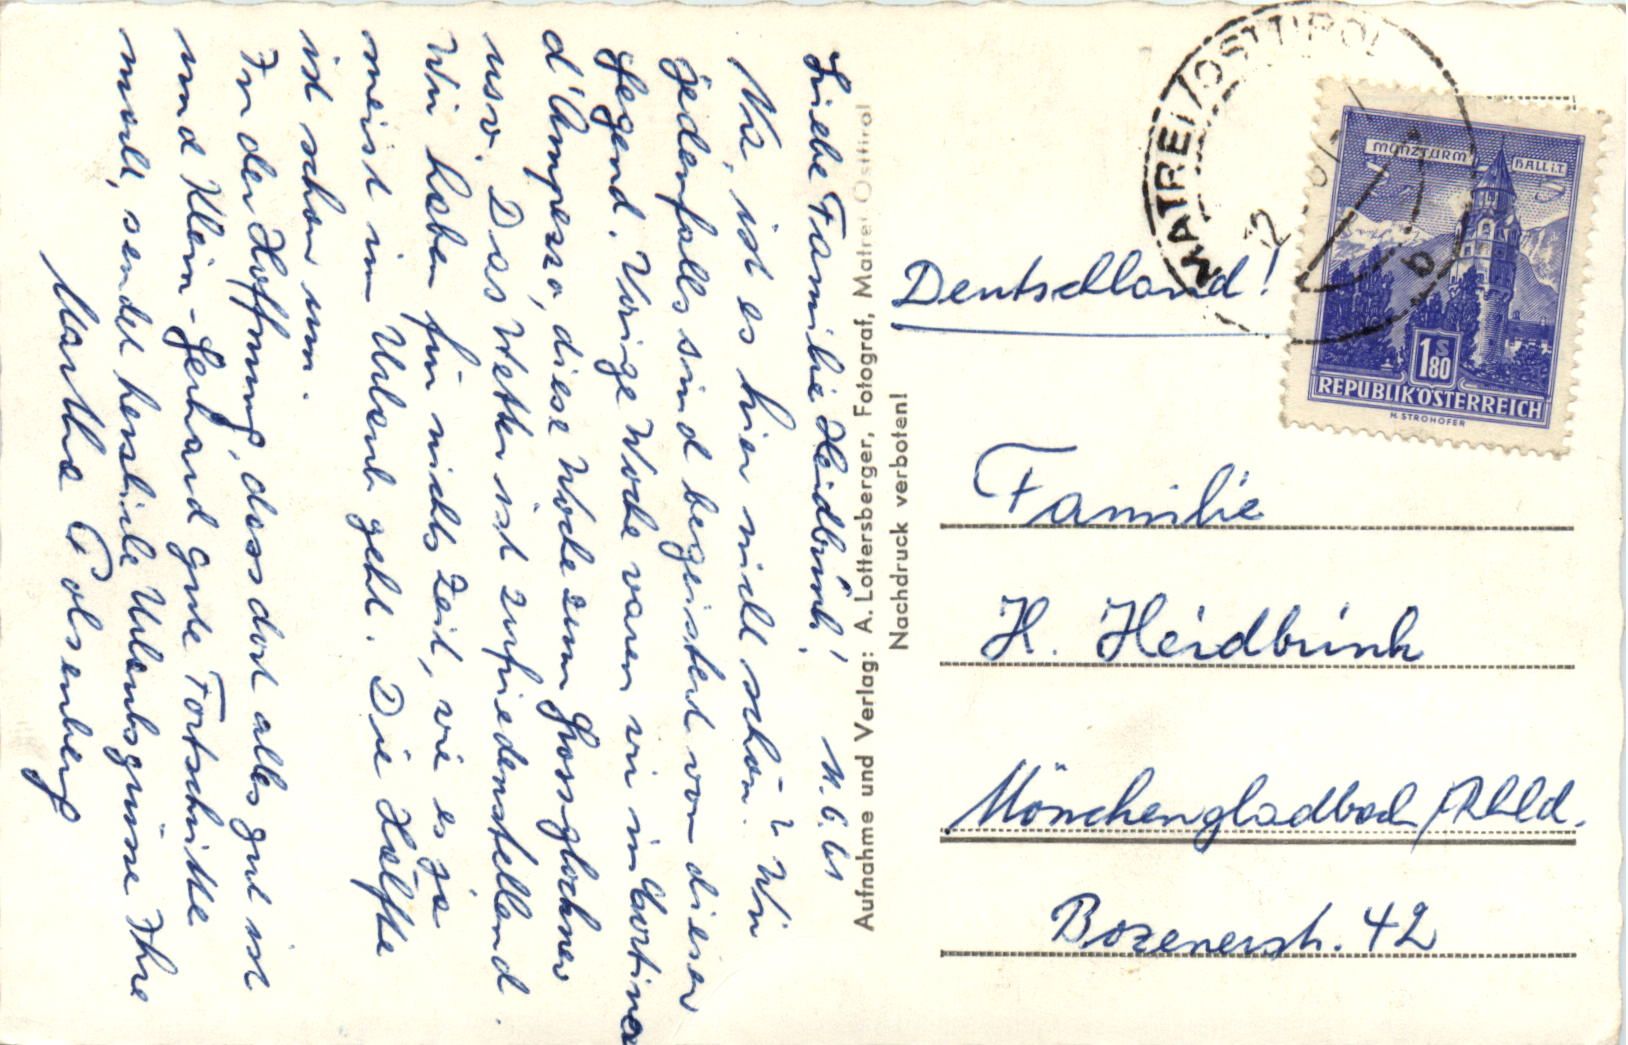 Liebe Familie Heidbrink! 11.6.61
Na, ist es hier nicht schön? Wir
jedenfalls sind begeistert von dieser
Gegend. Vorige Woche waren wir in Cortina
d'Ampezzo, diese Woche zum Grossglockner
usw. Das Wetter ist zufriedenstellend.
Wir haben für nichts Zeit, wie es ja
meist im Urlaub geht. Die Hälfte
ist schon um.
In der Hoffnung, dass dort alles gut ist
und Klein-Gerhard gute Fortschritte
macht, sendet herzliche Urlaubsgrüsse Ihre
Martha Polsenberg
Aufnahme und Verlag: A. Lottersberger, Fotograf, Matrei Osttirol
Nachdruck verboten!
MATREI/OSTTIROL
MÜNZTURM HALL i.T.
1 S 80
REPUBLIK ÖSTERREICH
H. STROHOFER
Deutschland!
Familie
H. Heidbrink
Mönchengladbach/Rhld.
Bozenerstr. 42